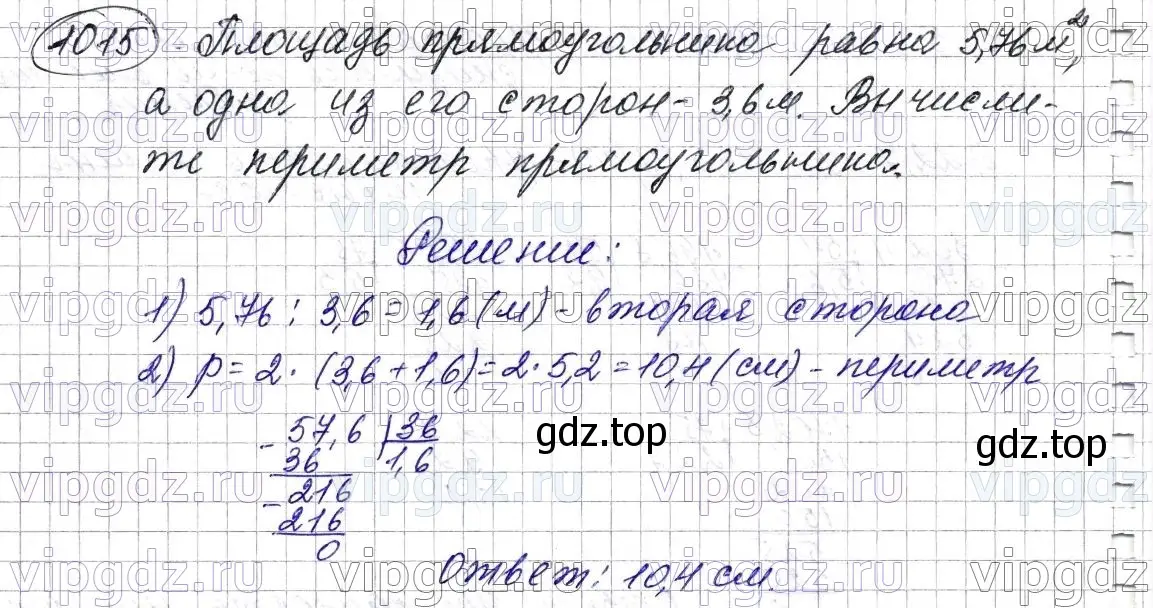 1015 Площадь прямоугольника равна 5,76 м²,
а одна из его сторон - 3,6 м. Вычисли-
те периметр прямоугольника.
Решение:
1) 5,76 : 3,6 = 1,6 (м) - вторая сторона
2) P = 2 · (3,6 + 1,6) = 2 · 5,2 = 10,4 (см) - периметр
- 57,6 | 36
36 1,6
- 216
216
0
gdz.top
Ответ: 10,4 см.
vipgdz.ru